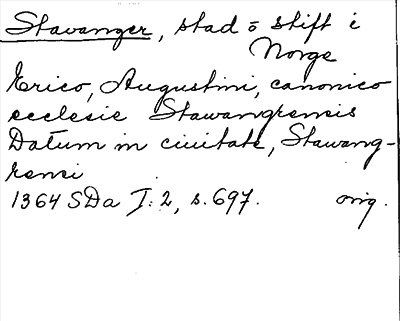 Stavanger, stad o stift i
Norge
Erico, Augustini, canonico
ecclesie Stawangrensis
Datum in ciuitate, Stawang-
rensi
1364 SDa I: 2, s. 697. orig.